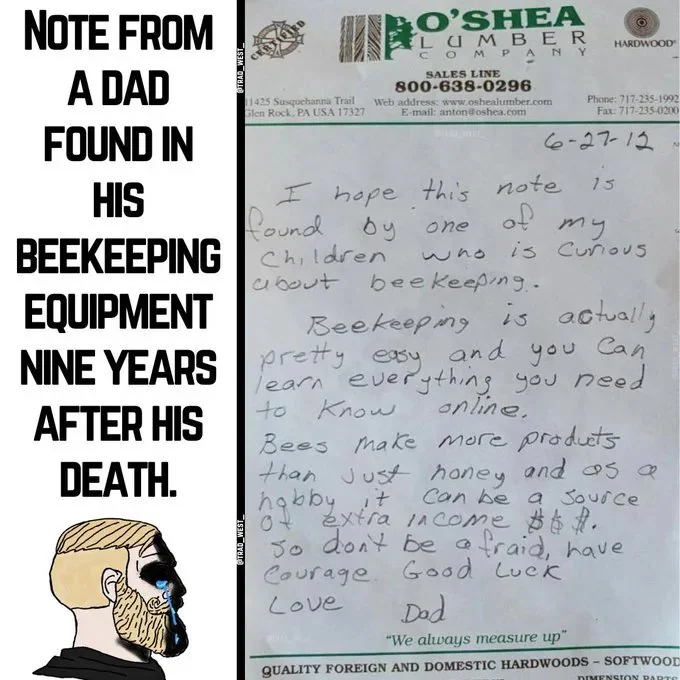 NOTE FROM
A DAD
FOUND IN
HIS
BEEKEEPING
EQUIPMENT
NINE YEARS
AFTER HIS
DEATH.
@TRAD_WEST_
@TRAD_WEST_
O'SHEA
LUMBER
COMPANY
HARDWOOD
SALES LINE
800-638-0296
11425 Susquehanna Trail
Glen Rock, PA USA 17327
Web address: www.oshealumber.com
E-mail: anton@oshea.com
Phone: 717-235-1992
Fax: 717-235-0200
6-27-12
I hope this note is
found by one of my
Children who is Curious
about beekeeping.
Beekeeping is actually
pretty easy and you can
learn everything you need
to know online.
Bees make more products
than just honey and as a
hobby it can be a source
of extra income $$$.
So don't be afraid, have
Courage. Good Luck
Love Dad
"We always measure up"
QUALITY FOREIGN AND DOMESTIC HARDWOODS – SOFTWOOD
DIMENSION PARTS